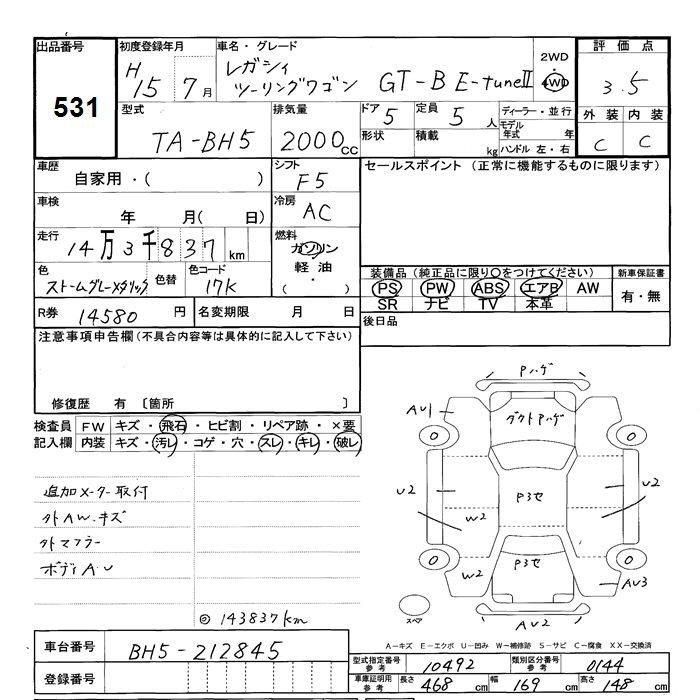 出品番号 初度登録年月 車名・グレード 2WD 評価点
531 H15 7月 レガシィ ツーリングワゴン GT-B E-tuneⅡ 4WD 3.5
型式 排気量 ドア 5 定員 5人 ディーラー・並行 外装 内装
TA-BH5 2000cc 形状 積載 kg モデル年式 年 C C
ハンドル 左・右
車歴 シフト セールスポイント (正常に機能するものに限ります)
自家用・( ) F5
車検 冷房
年 月( 日) AC
走行 燃料
14万3千837km ガソリン
軽油
・( )
色 色替 色コード 装備品(純正品に限り○をつけてください) 新車保証書
ストームグレーメタリック 17K PS PW ABS エアB AW 有・無
SR ナビ TV 本革
R券 14580円 名変期限 月 日 後日品
注意事項申告欄(不具合内容等は具体的に記入して下さい)
修復歴 有 〔箇所 〕
検査員 FW キズ・飛石・ヒビ割・リペア跡・×要
記入欄 内装 キズ・汚レ・コゲ・穴・スレ・キレ・破レ
追加メーター取付
外AW.キズ
外マフラー
ボディA・U
◎143837km
Pハゲ
AU1
ダクトPハゲ
0 0
U2 P3セ U2
W2 W2
P3セ
0 0
W2 AU3
スペア
AU2
A－キズ E－エクボ U－凹み W－補修跡 S－サビ C－腐食 XX－交換済
車台番号 BH5-212845
登録番号
型式指定番号 参考 10492 類別区分番号 参考 0144
車庫証明用 参考 長さ 468cm 幅 169cm 高さ 148cm